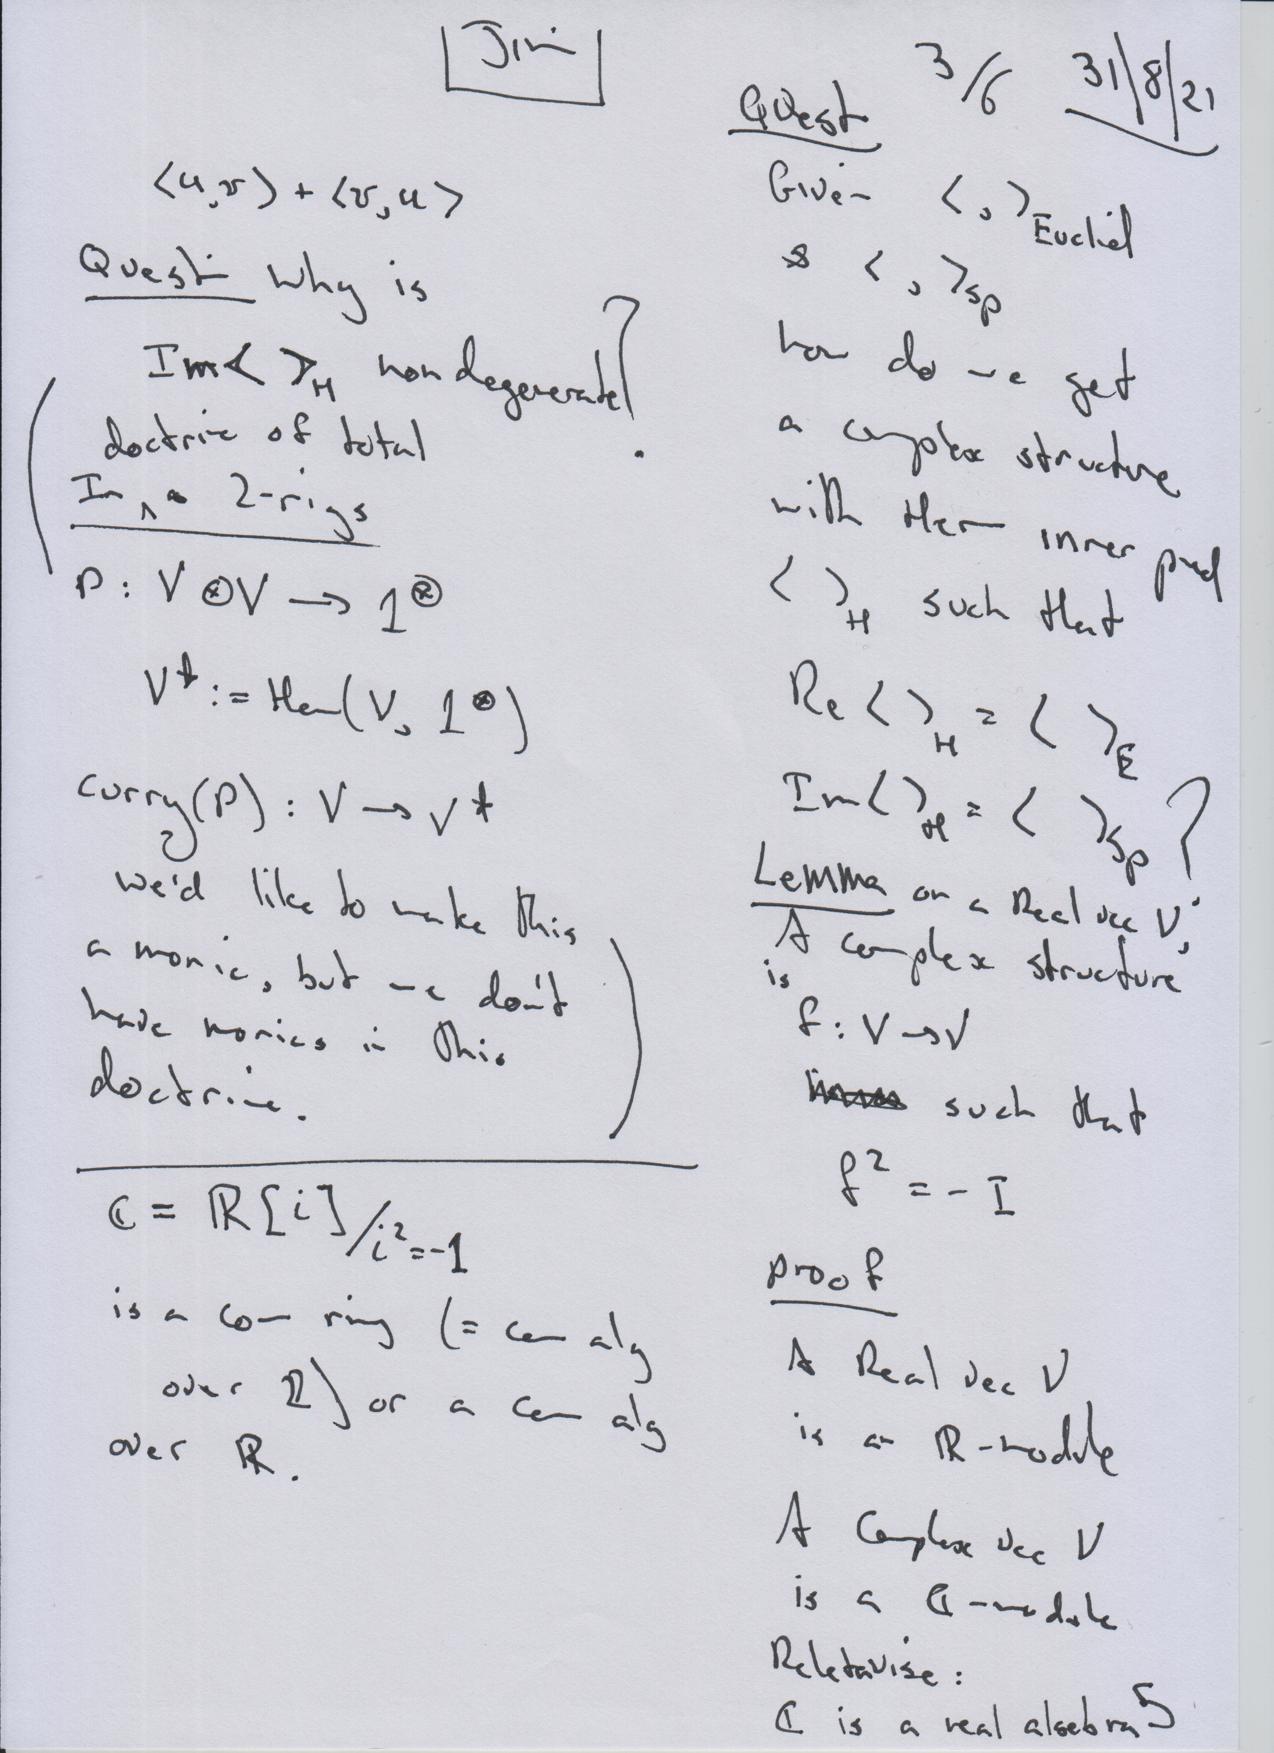 Jim
3/6 31/8/21
⟨u,v⟩ + ⟨v,u⟩
Quest Why is
Im⟨ ⟩_H nondegenerate?
(doctrine of total
In ^ 2-rigs
p : V ⊗ V → 1^⊗
V* := Hom(V, 1^⊗)
curry(p) : V → V*
we'd like to make this
a monic, but we don't
have monics in this
doctrine.)
ℂ = ℝ[i]/i²=-1
is a com ring (= com alg
over ℤ) or a com alg
over ℝ.
Quest
Given ⟨,⟩_Euclid
& ⟨,⟩_sp
how do we get
a complex structure
with Herm inner prod
⟨ ⟩_H such that
Re⟨ ⟩_H = ⟨ ⟩_E
Im⟨ ⟩_H = ⟨ ⟩_sp ?
Lemma on a Real vec V,
A complex structure
is
f : V → V
such that
f² = - I
proof
A Real vec V
is an ℝ-module
A Complex vec V
is a ℂ-module
Reletavise:
ℂ is a real algebra 5